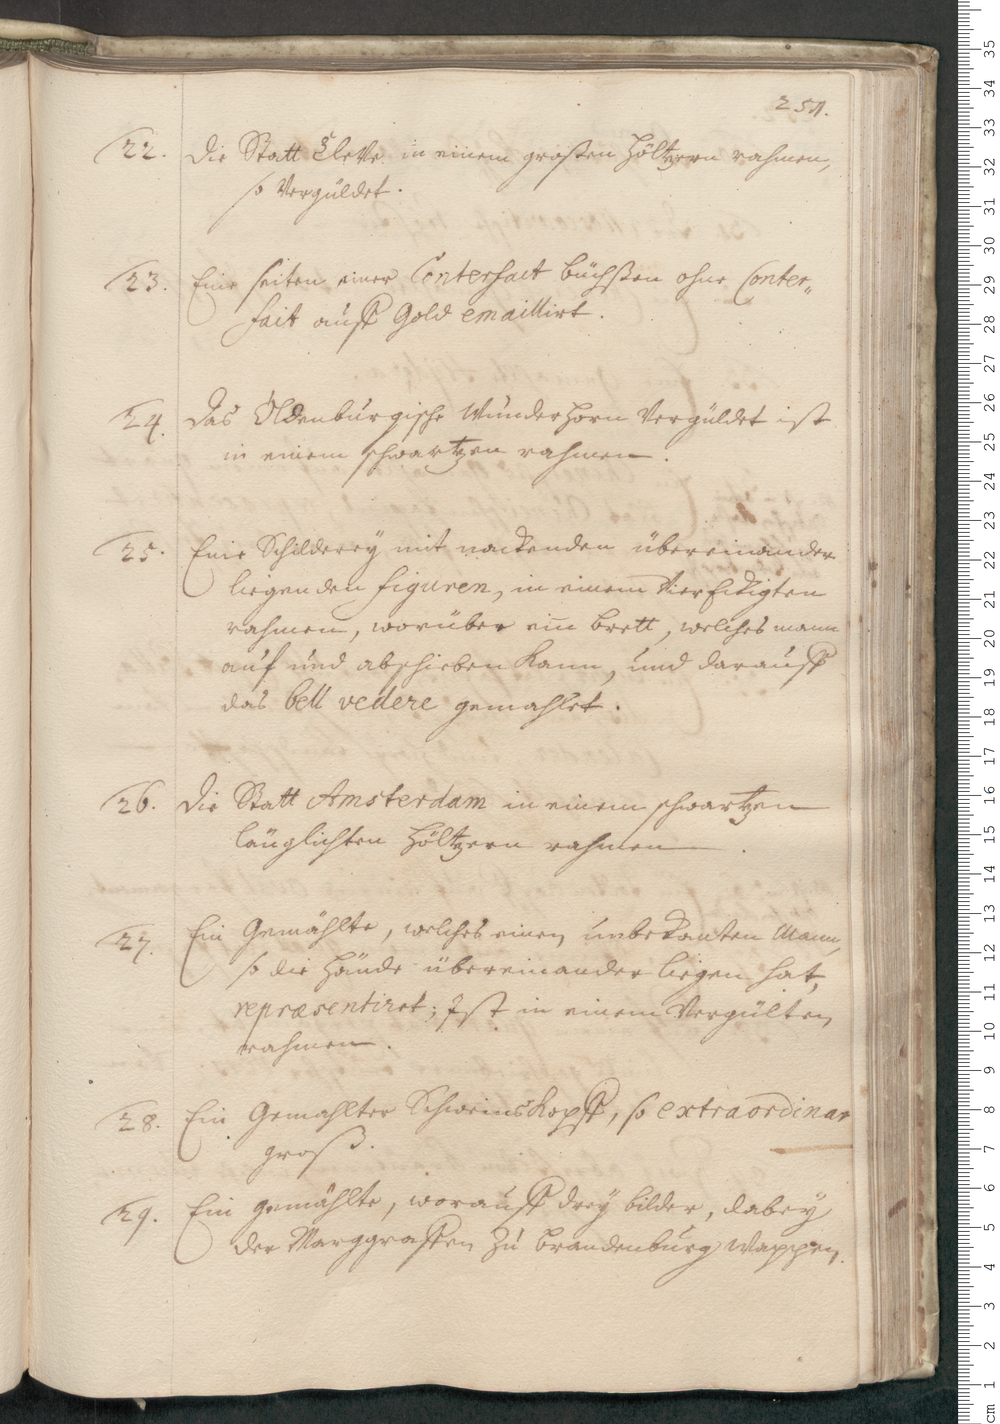 251.
22. Die Statt Cleve in einem großen höltzern rahmen,
so vergüldet.
23. Eine seiten einer Conterfait büchßen ohne Conter„
fait auff Gold emaillirt.
24. Das Oldenburgische Wunderhorn vergüldet ist
in einem schwartzen rahmen.
25. Eine Schilderey mit nackenden übereinander
liegenden figuren, in einem VierEckigten
rahmen, worüber ein brett, welches mann
auf und abschieben kann, und darauff
das bell vedere gemahlet.
26. Die Statt Amsterdam in einem schwartzen
länglichten höltzern rahmen.
27. Ein Gemählte, welches einen unbekanten Mann,
so die hände übereinander liegen hat,
repræsentiret; Ist in einem Vergülten
rahmen.
28. Ein Gemahlter Schweinskopff, so extraordinar
groß.
29. Ein gemählte, worauff drey bilder, dabey
der Marggraffen zu brandenburg Wappen.
35
34
33
32
31
30
29
28
27
26
25
24
23
22
21
20
19
18
17
16
15
14
13
12
11
10
9
8
7
6
5
4
3
2
1
cm